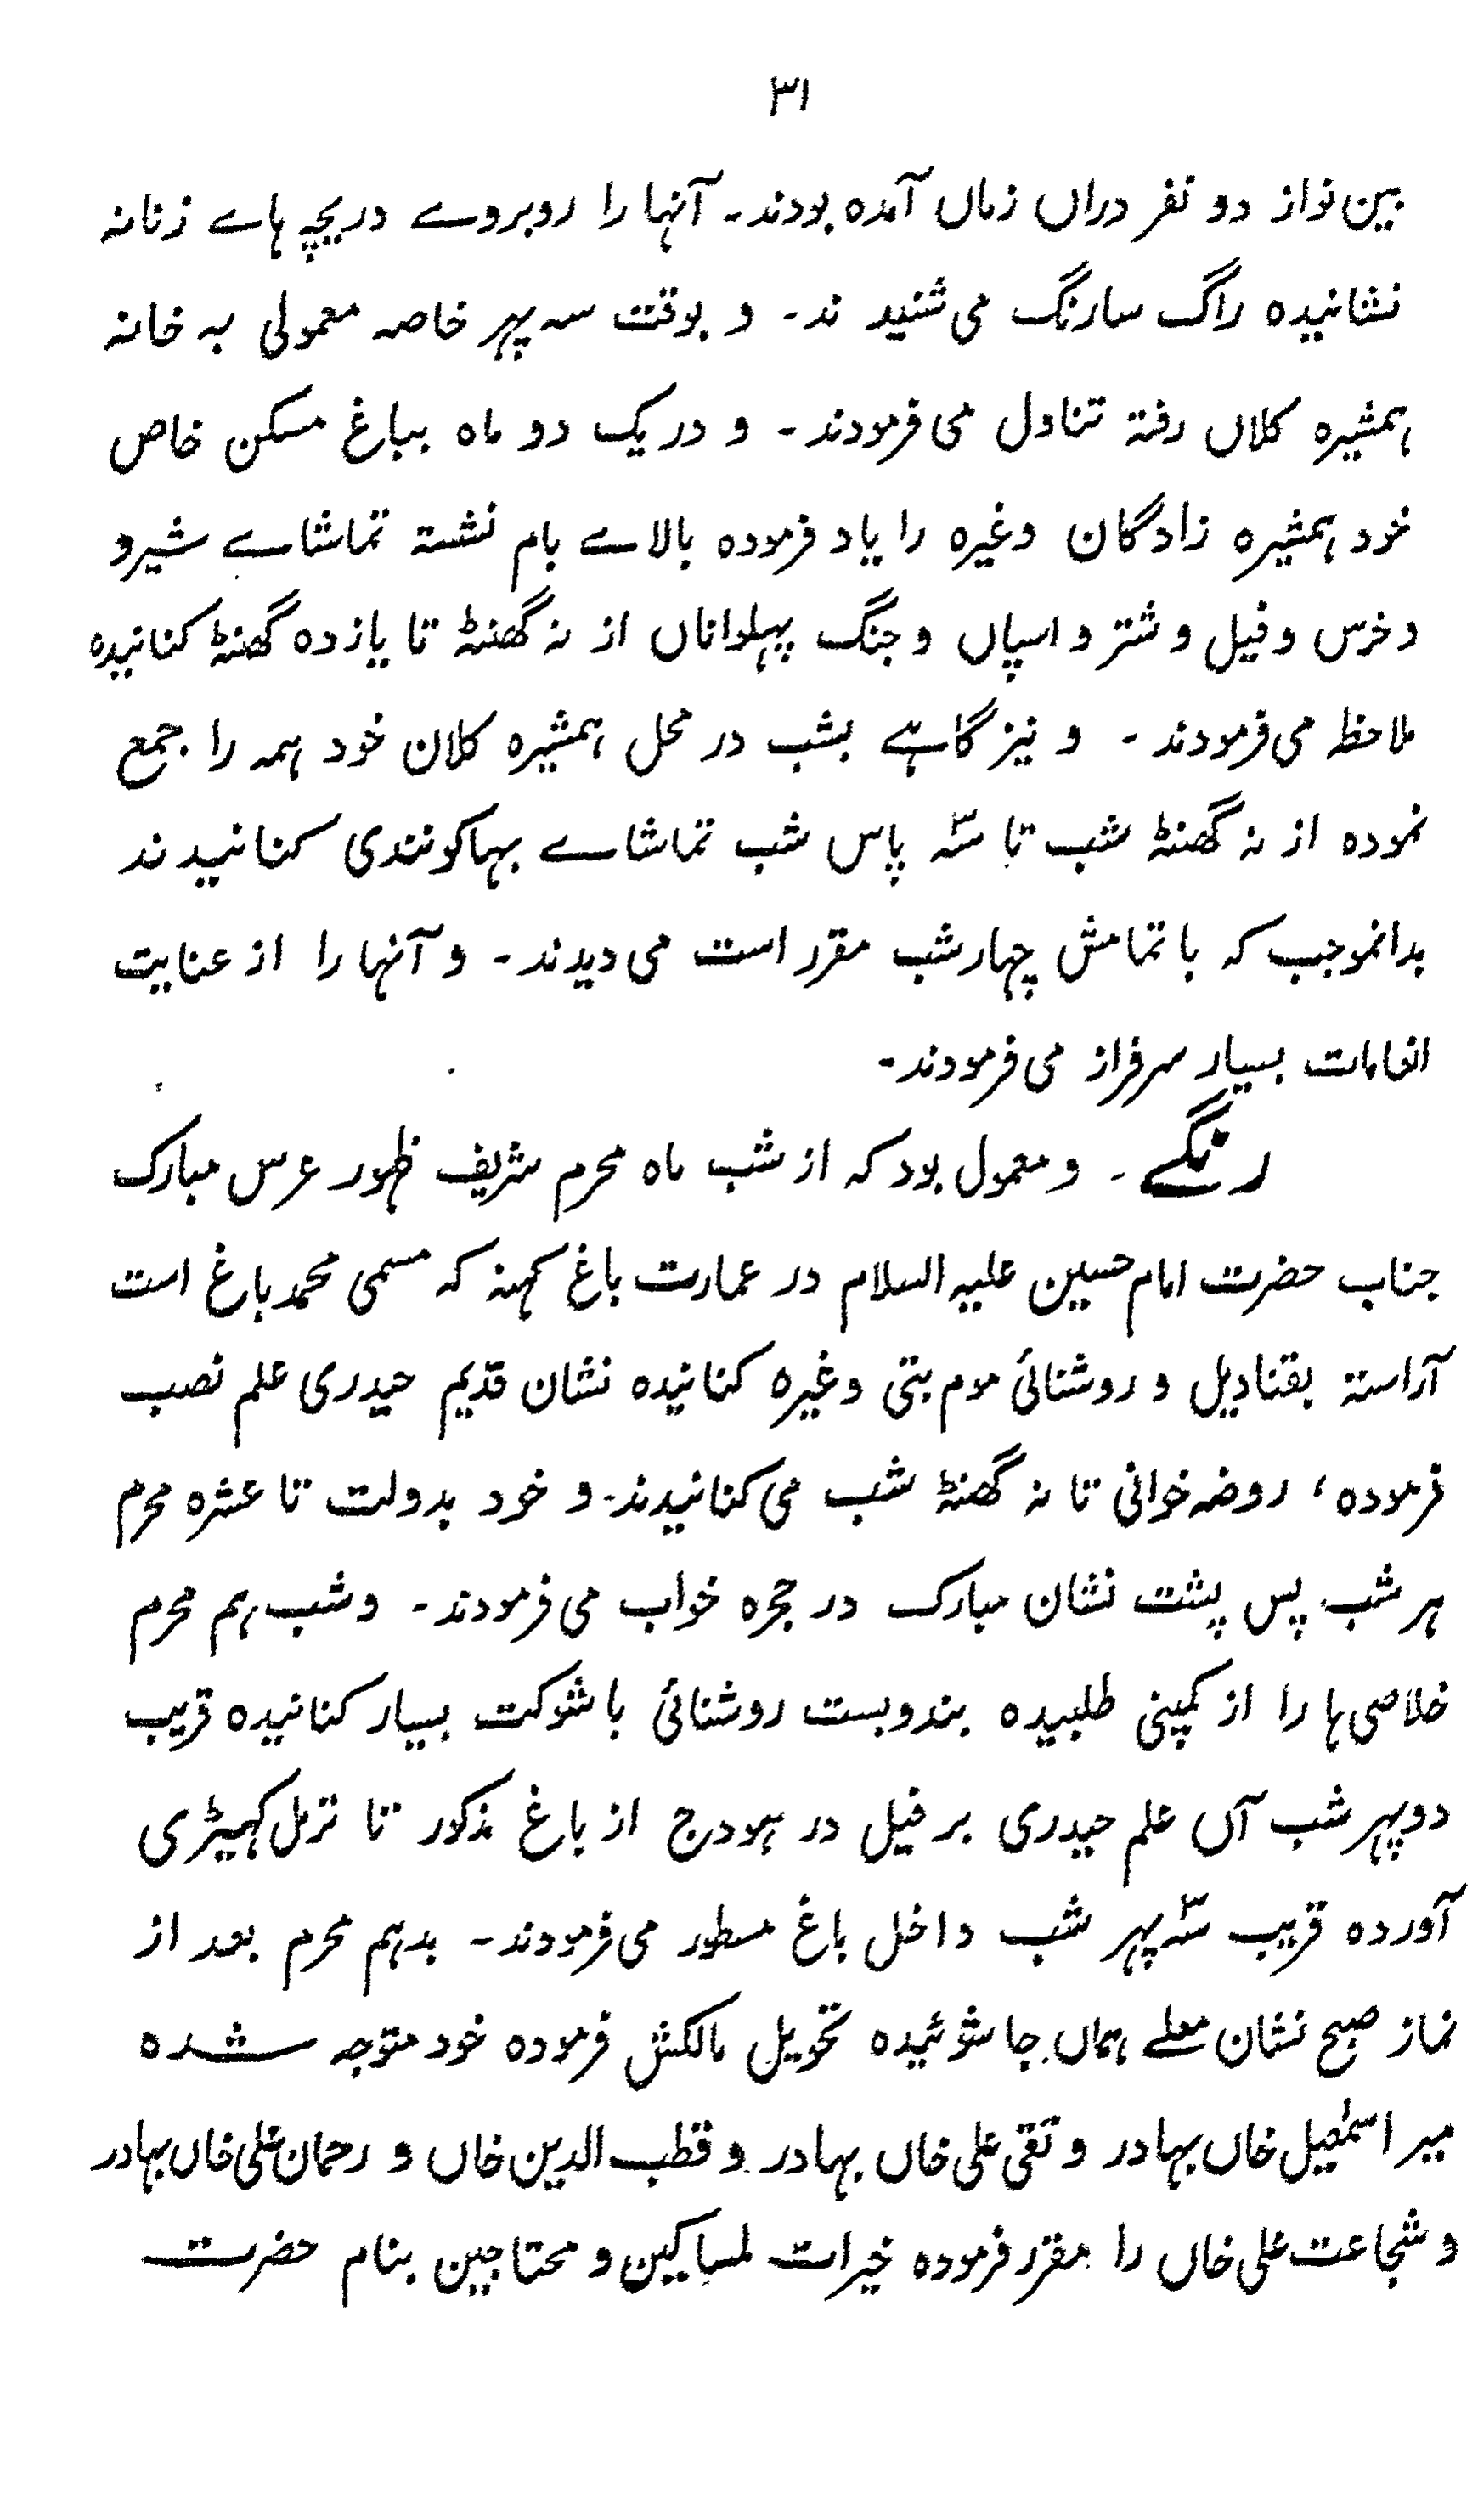 ۳۱
بین نواز دو نفر دراں زماں آمده بودند۔ آنہا را روبروے دریچہ ہاے زنانہ
نشانیده راگ سارنگ می شنید ند۔ و بوقت سہ پہر خاصہ معمولی بہ خانہ
ہمشیره کلاں رفتہ تناول می فرمودند۔ و در یک دو ماه بباغ مسکن خاص
خود ہمشیره زادگان وغیره را یاد فرموده بالاے بام نشستہ تماشاے شیر و
و خرس و فیل و شتر و اسپاں و جنگ پہلواناں از نہ گھنٹہ تا یازده گھنٹہ کنانیده
ملاحظہ می فرمودند۔ و نیز گاہے بشب در محل ہمشیره کلان خود ہمہ را جمع
نموده از نہ گھنٹہ شب تا سہ پاس شب تماشاے بہاکوندی کنانیدند
بدانموجب کہ با تمامش چہار شب مقرر است می دیدند۔ و آنہا را از عنایت
انعامات بسیار سرفراز می فرمودند۔
رنگے۔ و معمول بود کہ از شب ماه محرم شریف ظہور عرس مبارک
جناب حضرت امام حسین علیہ السلام در عمارت باغ کہنہ کہ مسمی محمد باغ است
آراستہ بقنادیل و روشنائی موم بتی وغیره کنانیده نشان قدیم حیدری علم نصب
فرموده، روضہ خوانی تا نہ گھنٹہ شب می کنانیدند۔ و خود بدولت تا عشره محرم
ہر شب پس پشت نشان مبارک در حجره خواب می فرمودند۔ و شب نہم محرم
خلاصی ہا را از کمپنی طلبیده بندوبست روشنائی با شوکت بسیار کنانیده قریب
دو پہر شب آں علم حیدری بر فیل در ہودج از باغ مذکور تا ترمل کہیڑی
آورده قریب سہ پہر شب داخل باغ مسطور می فرمودند۔ بدہم محرم بعد از
نماز صبح نشان معلے ہماں جا شوئیده تحویل مالکش فرموده خود متوجہ شده
میر اسمٰعیل خاں بہادر و تقی علی خاں بہادر و قطب الدین خاں و رحمان علی خاں بہادر
و شجاعت علی خاں را مقرر فرموده خیرات لمساکین و محتاجین بنام حضرت